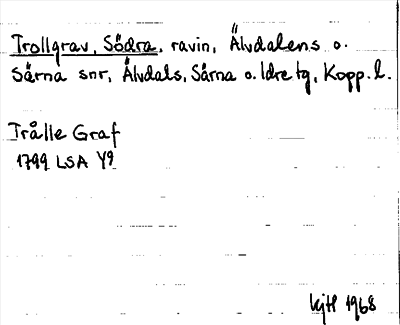 Trollgrav, Södra, ravin, Älvdalens o.
Särna snr, Älvdals, Särna o. Idre tg, Kopp. l.
Trålle Graf
1799 LSA Y9
KjH 1968